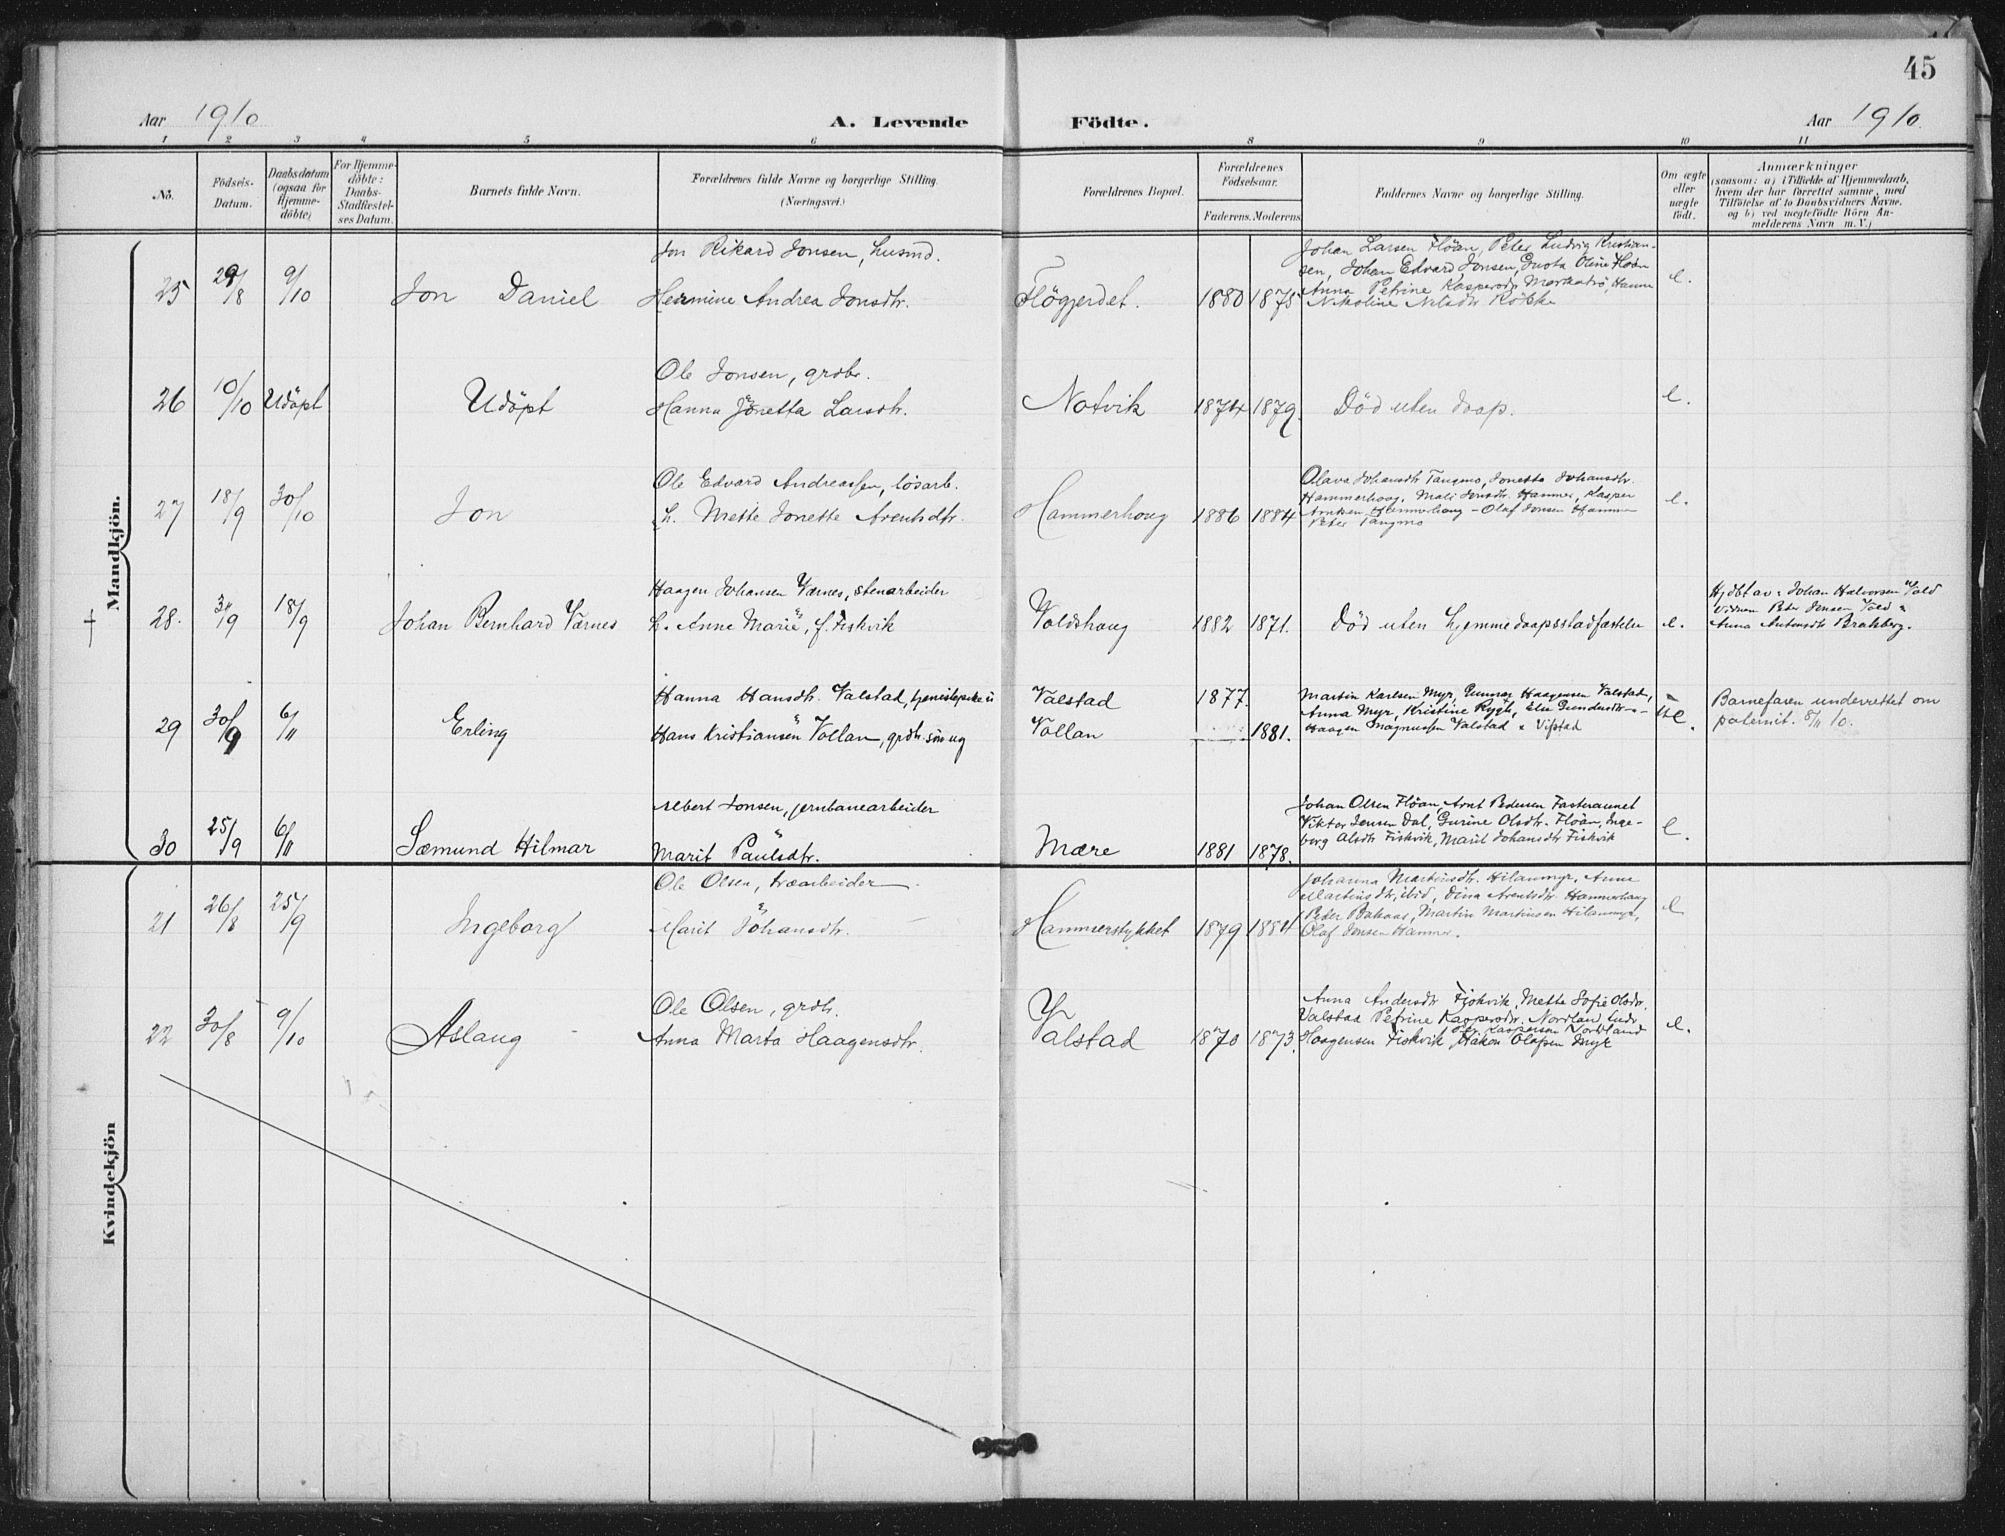 45
Aar 1910
A. Levende Födte.
Aar 1910.
1 2 3 4 5 6 8 9 10 11
No.
Födsels-Datum.
Daabsdatum (ogsaa for Hjemme-döbte)
For Hjemme-döbte: Daabs-Stadfæstel-ses Datum.
Barnets fulde Navn.
Forældrenes fulde Navne og borgerlige Stilling. (Næringsvei.)
Forældrenes Bopæl.
Forældrenes Födselsaar.
Faderens. Moderens.
Faddernes Navne og borgerlige Stilling.
Om ægte eller uægte födt.
Anmærkninger
(saasom: a) i Tilfælde af Hjemmedaab,
hvem der har forrettet samme, med
Tilföielse af to Daabsvidners Navne.
og b) ved uægtefödte Börn An-
melderens Navn m. V.)
Mandkjön.
25 29/8 9/10 Jon Daniel
Jon Rikard Jonsen, husmd.
Hermine Andrea Jonsdtr.
Flögjerdet. 1880 1875
Johan Larsen Flöan, Peter Ludvig Kristian-
sen, Johan Edvard Jonsen, Gusta Oline Floan
Anna Petrine Kaspersdr Hanna
Nikoline Nilsdtr
e.
26 10/10 Udöpt Udöpt
Ole Jonsen, grdbr.
Hanna Jonetta Larsdtr.
Notvik 1874 1879. Död uten daap. e.
27 18/9 30/10 Jon
Ole Edvard Andreassen, lösarb.
h. Mette Jonette Arentsdtr.
Hammerhoug 1886 1884
Olava Johansdtr Tangmo, Jonetta Johansdtr.
Hammerhoug, Mali Jonsdtr. Hammer, Kasper
Arntsen Hammerhaug - Olaf Jonsen Hammer
Peter Tangmo
e.
28. 3/9 18/9 Johan Bernhard Værnes
Haagen Johansen Værnes, stenarbeider
h. Anne Marie, f. Fiskvik
Voldshaug 1882 1871. Död uten hjemmedaapsstadfæstelse e.
Hjdbt av: Johan Halvorsen Vold
Vidnen Peter Jensen Vold
Anna Antonsdtr Bratsberg.
29 30/9 6/11 Erling
Hanna Hansdtr. Valstad, tjenestepike
Hans Kristiansen Vollan, grdbr. sön ug
Valstad 1877.
Vollan 1881.
Martin Karlsen Myr, Gunnar Haagensen Valstad,
Anna Myr, Kristine Rygh,
Haagen Magnussen Valstad Vifstad
ue.
Barnefaren underrettet om
paternit. 8/11 10.
30 25/9 6/11 Sæmund Hilmar
Albert Jonsen, jernbanearbeider
Marit Paulsdtr.
Mære 1881 1878.
Johan Olsen Flöan, Arnt Pedersen Fasteraunet
Viktor Jensen Dal, Gurine Olsdtr. Flöan, Inge-
borg Olsdtr Fiskvik, Marit Johansdtr Fiskvik
e.
Kvindekjön
21 26/8 25/9 Ingeborg
Ole Olsen, træarbeider
Marit Johansdtr.
Hammerstykket 1879 1884
Johanna Martinsdtr. Hilanmyr, Anna
Martinsdtr, ibid, Dina Arentsdtr. Hammerhaug
Peder Bakaas, Martin Martinsen Hilanmyr,
Olaf Jonsen Hammer.
e
22 30/8 9/10 Aslaug
Ole Olsen, grdbr.
Anna Marta Haagensdtr.
Valstad 1870 1873.
Anna Andersdtr Fiskvik, Mette Sofie Olsdtr.
Valstad Petrine Kaspersdr. Nordland, Ludv.
Kaspersen Nordland
Haagensen Fiskvik, Håkon Olafsen
e.